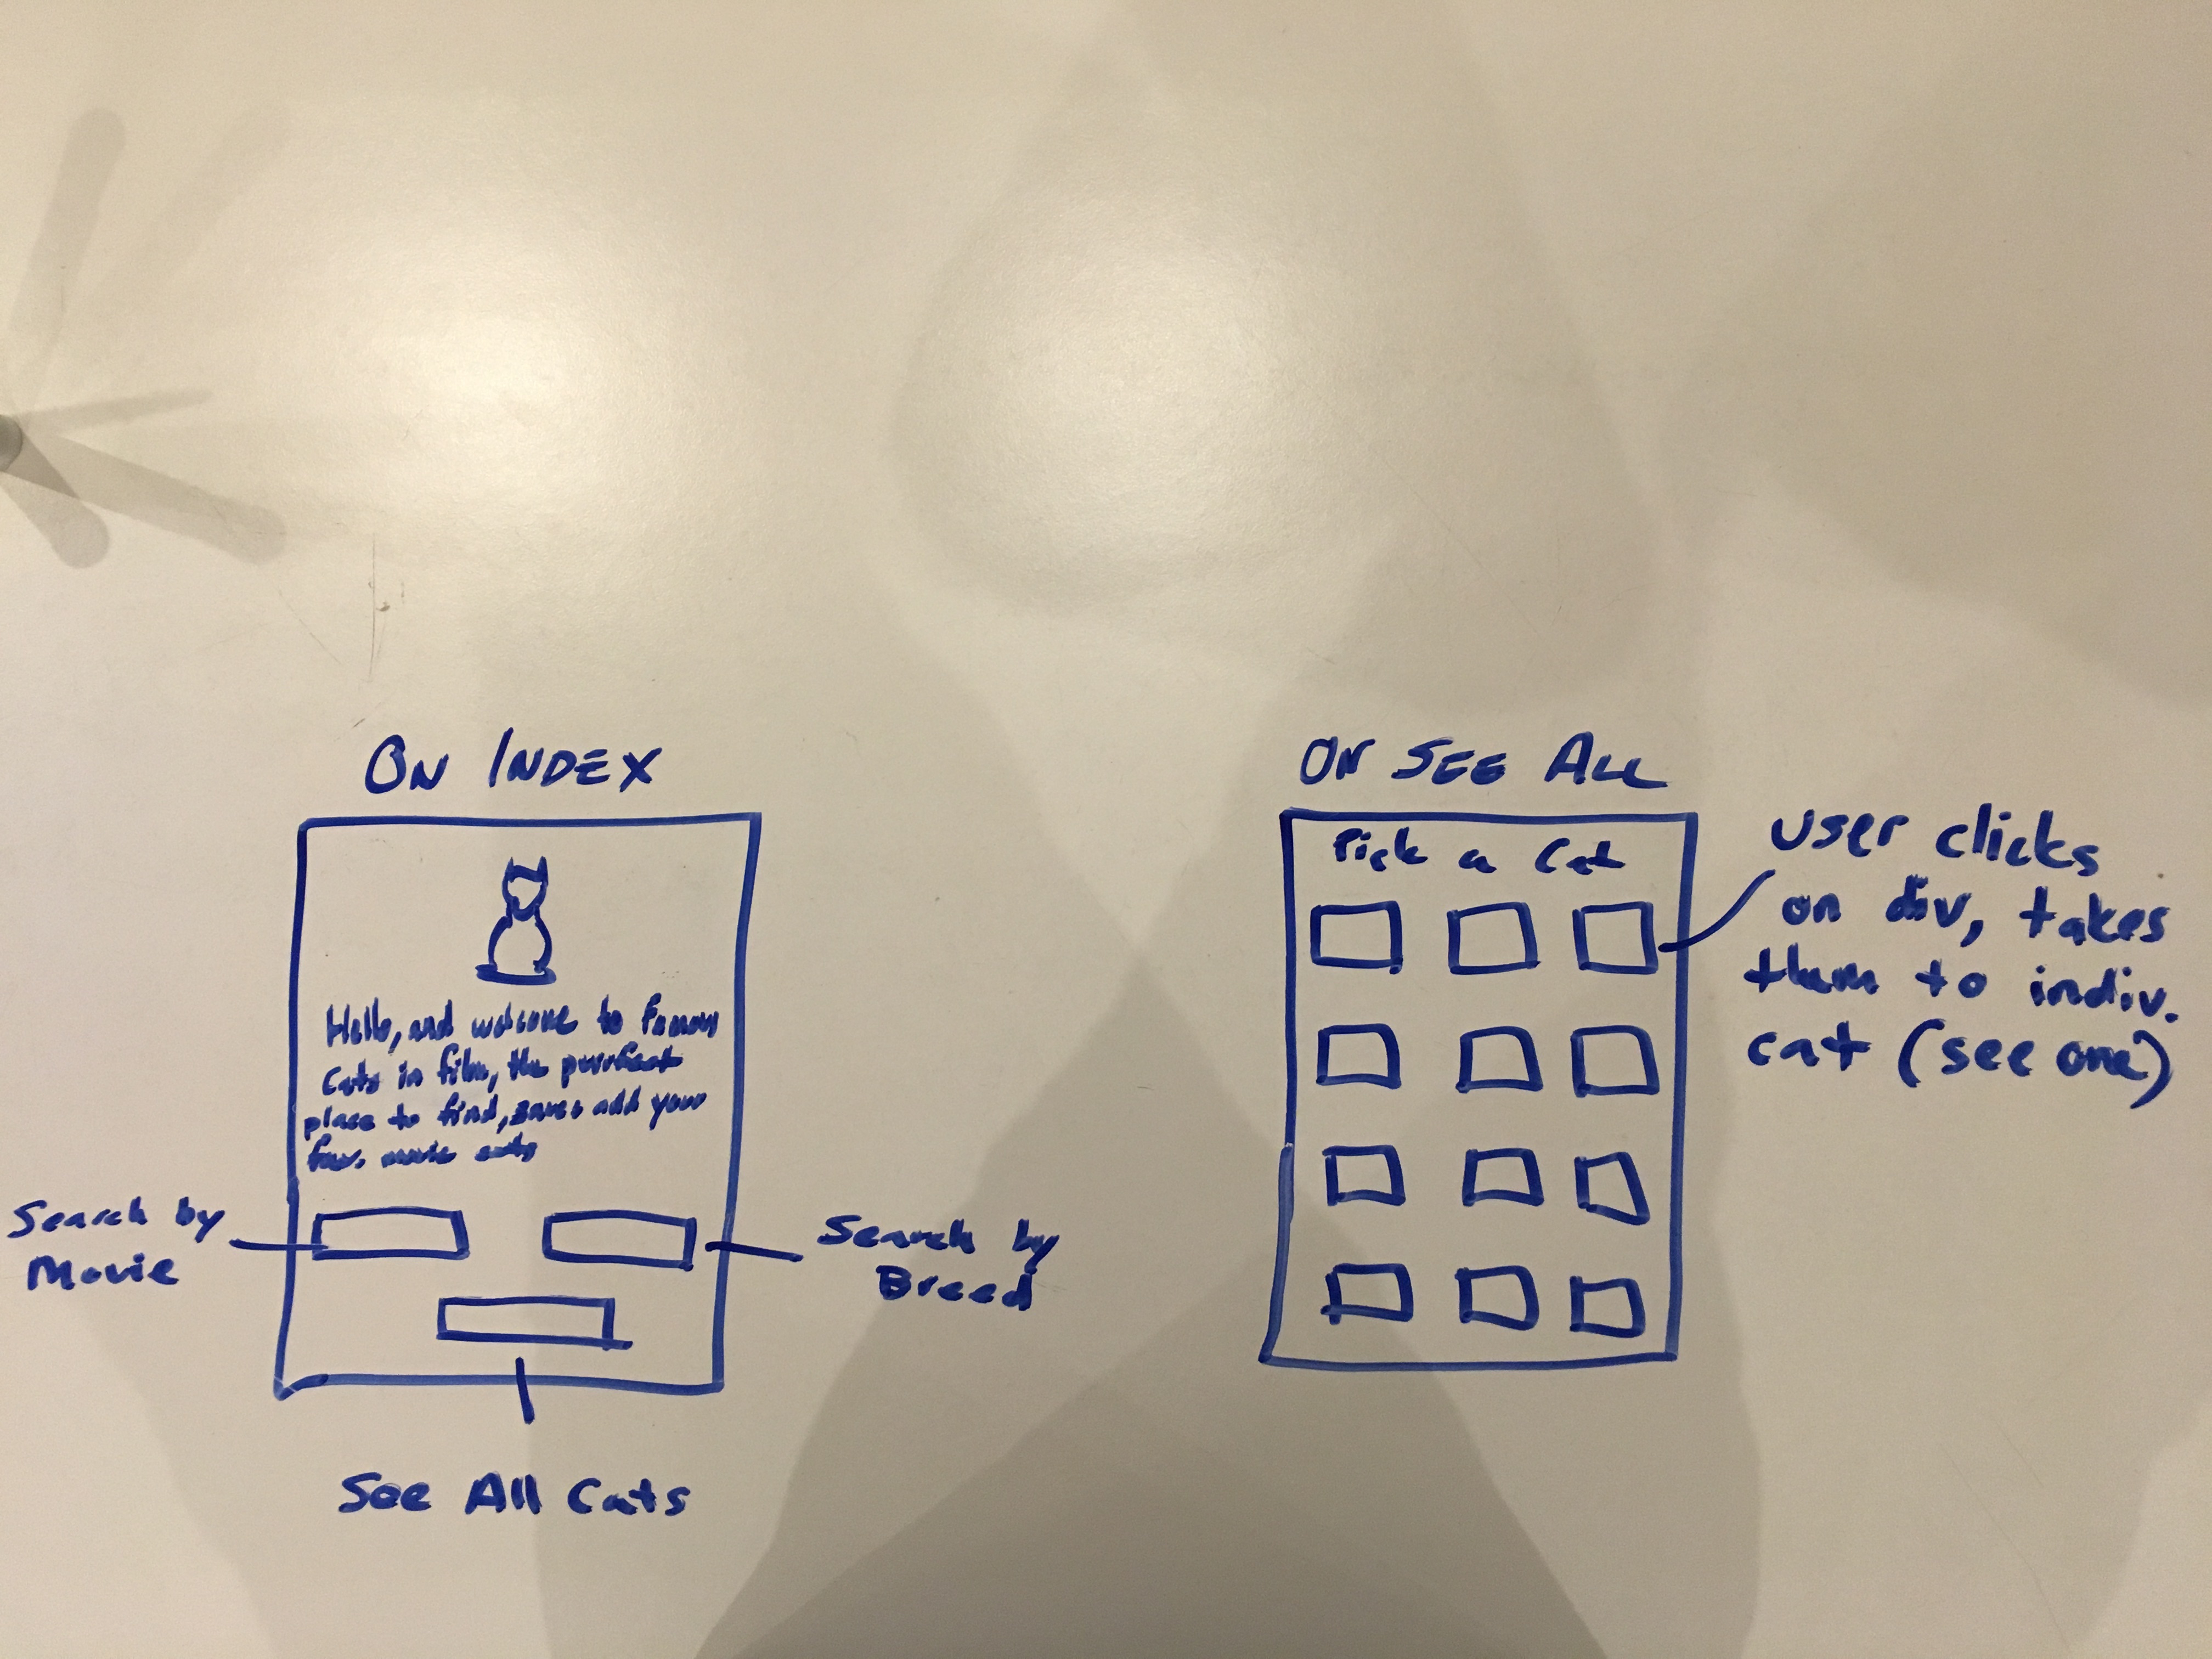 ON INDEX
Hello, and welcome to famous
cats in film, the purrfect
place to find, save & add your
fav. movie cats
Search by
Movie
Search by
Breed
See All Cats
ON SEE ALL
Pick a Cat
user clicks
on div, takes
them to indiv.
cat (see one)